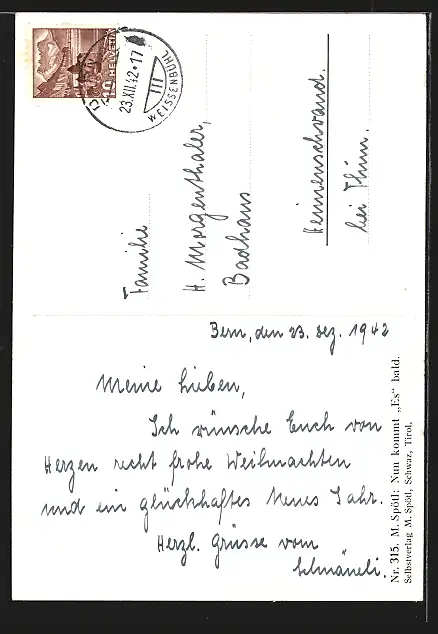 10 HELVETIA
23.XII.42-17
III
WEISSENBÜHL
Familie
H. Morgenthaler,
Badhaus
Heimenschwand.
bei Thun.
Bern, den 23. Dez. 1942
Meine Lieben,
Ich wünsche Euch von
Herzen recht frohe Weihnachten
und ein glückhaftes Neues Jahr.
Herzl. Grüsse vom
Schmäneli.
Nr. 315. M. Spötl: Nun kommt „Es“ bald.
Selbstverlag M. Spötl, Schwaz, Tirol.